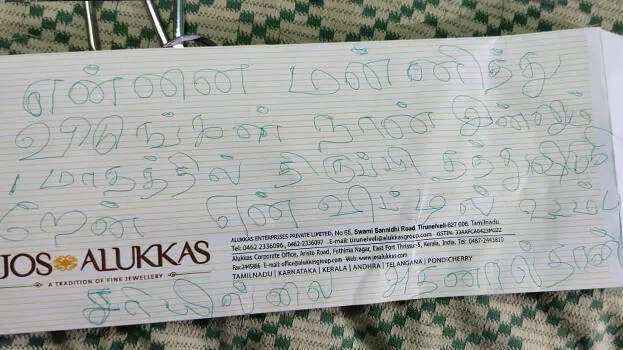 என்னை மன்னித்து
விடுங்கள் நான் இன்னும்
1 மாதத்தில் திருப்பி தந்துவிடு
கிறேன் என் வீட்டில் உடம்பு
JOS ALUKKAS
A TRADITION OF FINE JEWELLERY
ALUKKAS ENTERPRISES PRIVATE LIMITED, No 65, Swami Sannidhi Road, Tirunelveli-627 006, Tamilnadu.
Tel: 0462 2336096, 0462-2336097 E-mail: tirunelveli@alukkasgroup.com GSTIN:
Alukkas Corporate Office, Aristo Road, Fathima Nagar, East Fort Thrissur-5, Kerala, India. Tel: 0487-2443810
Fax:2445886 E-mail: office@alukkasgroup.com Web: www.josalukkas.com
TAMILNADU | KARNATAKA | KERALA | ANDHRA | TELANGANA | PONDICHERRY
சரியில்லை அதனால்தான்